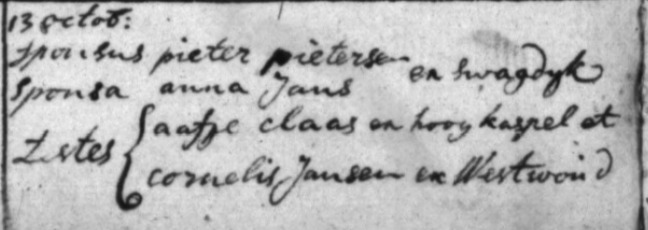 13 octob:
sponsus pieter pietersen
sponsa anna Jans ex swagdyk
testes { aafje claas ex hoog kaspel et
cornelis Jansen ex Westwoud